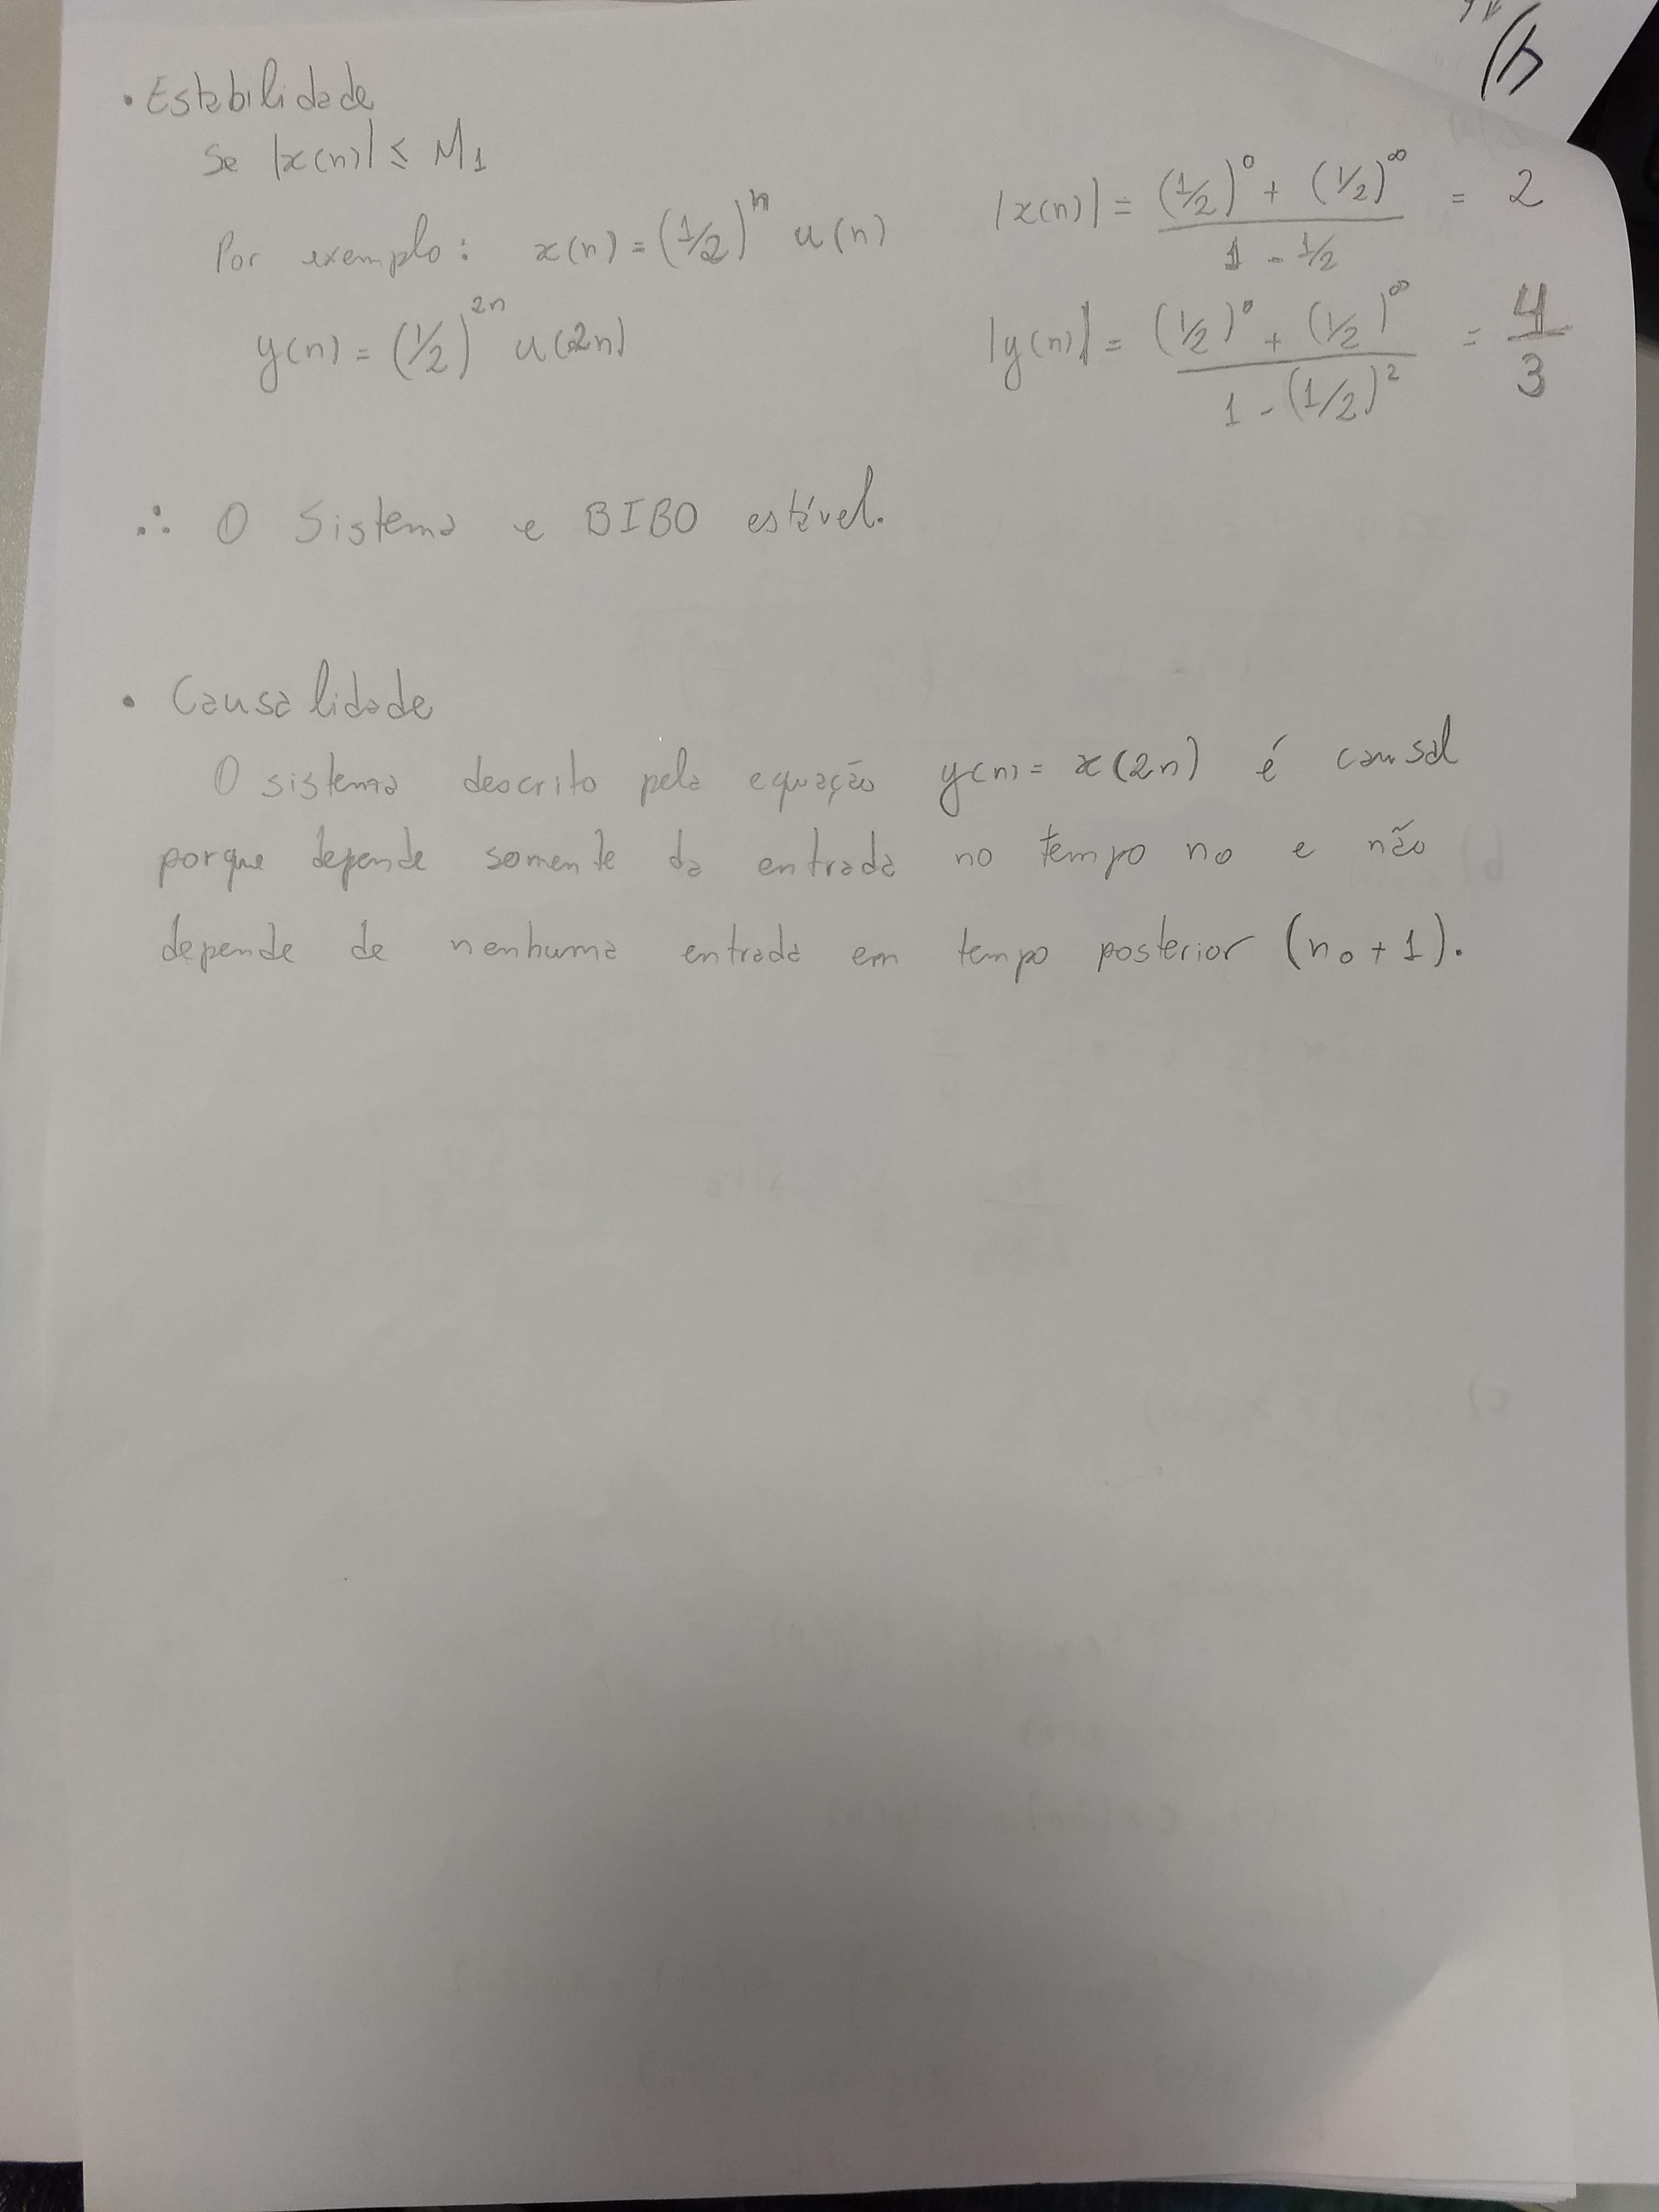 • Estabilidade
Se |x(n)| ≤ M₁
Por exemplo: x(n) = (1/2)ⁿ u(n)
|x(n)| = ((1/2)⁰ + (1/2)^∞) / (1 - 1/2) = 2
y(n) = (1/2)²ⁿ u(2n)
|y(n)| = ((1/2)⁰ + (1/2)^∞) / (1 - (1/2)²) = 4/3
∴ O Sistema e BIBO estável.
• Causalidade
O sistema descrito pela equação y(n) = x(2n) é causal
porque depende somente da entrada no tempo n₀ e não
depende de nenhuma entrada em tempo posterior (n₀ + 1).